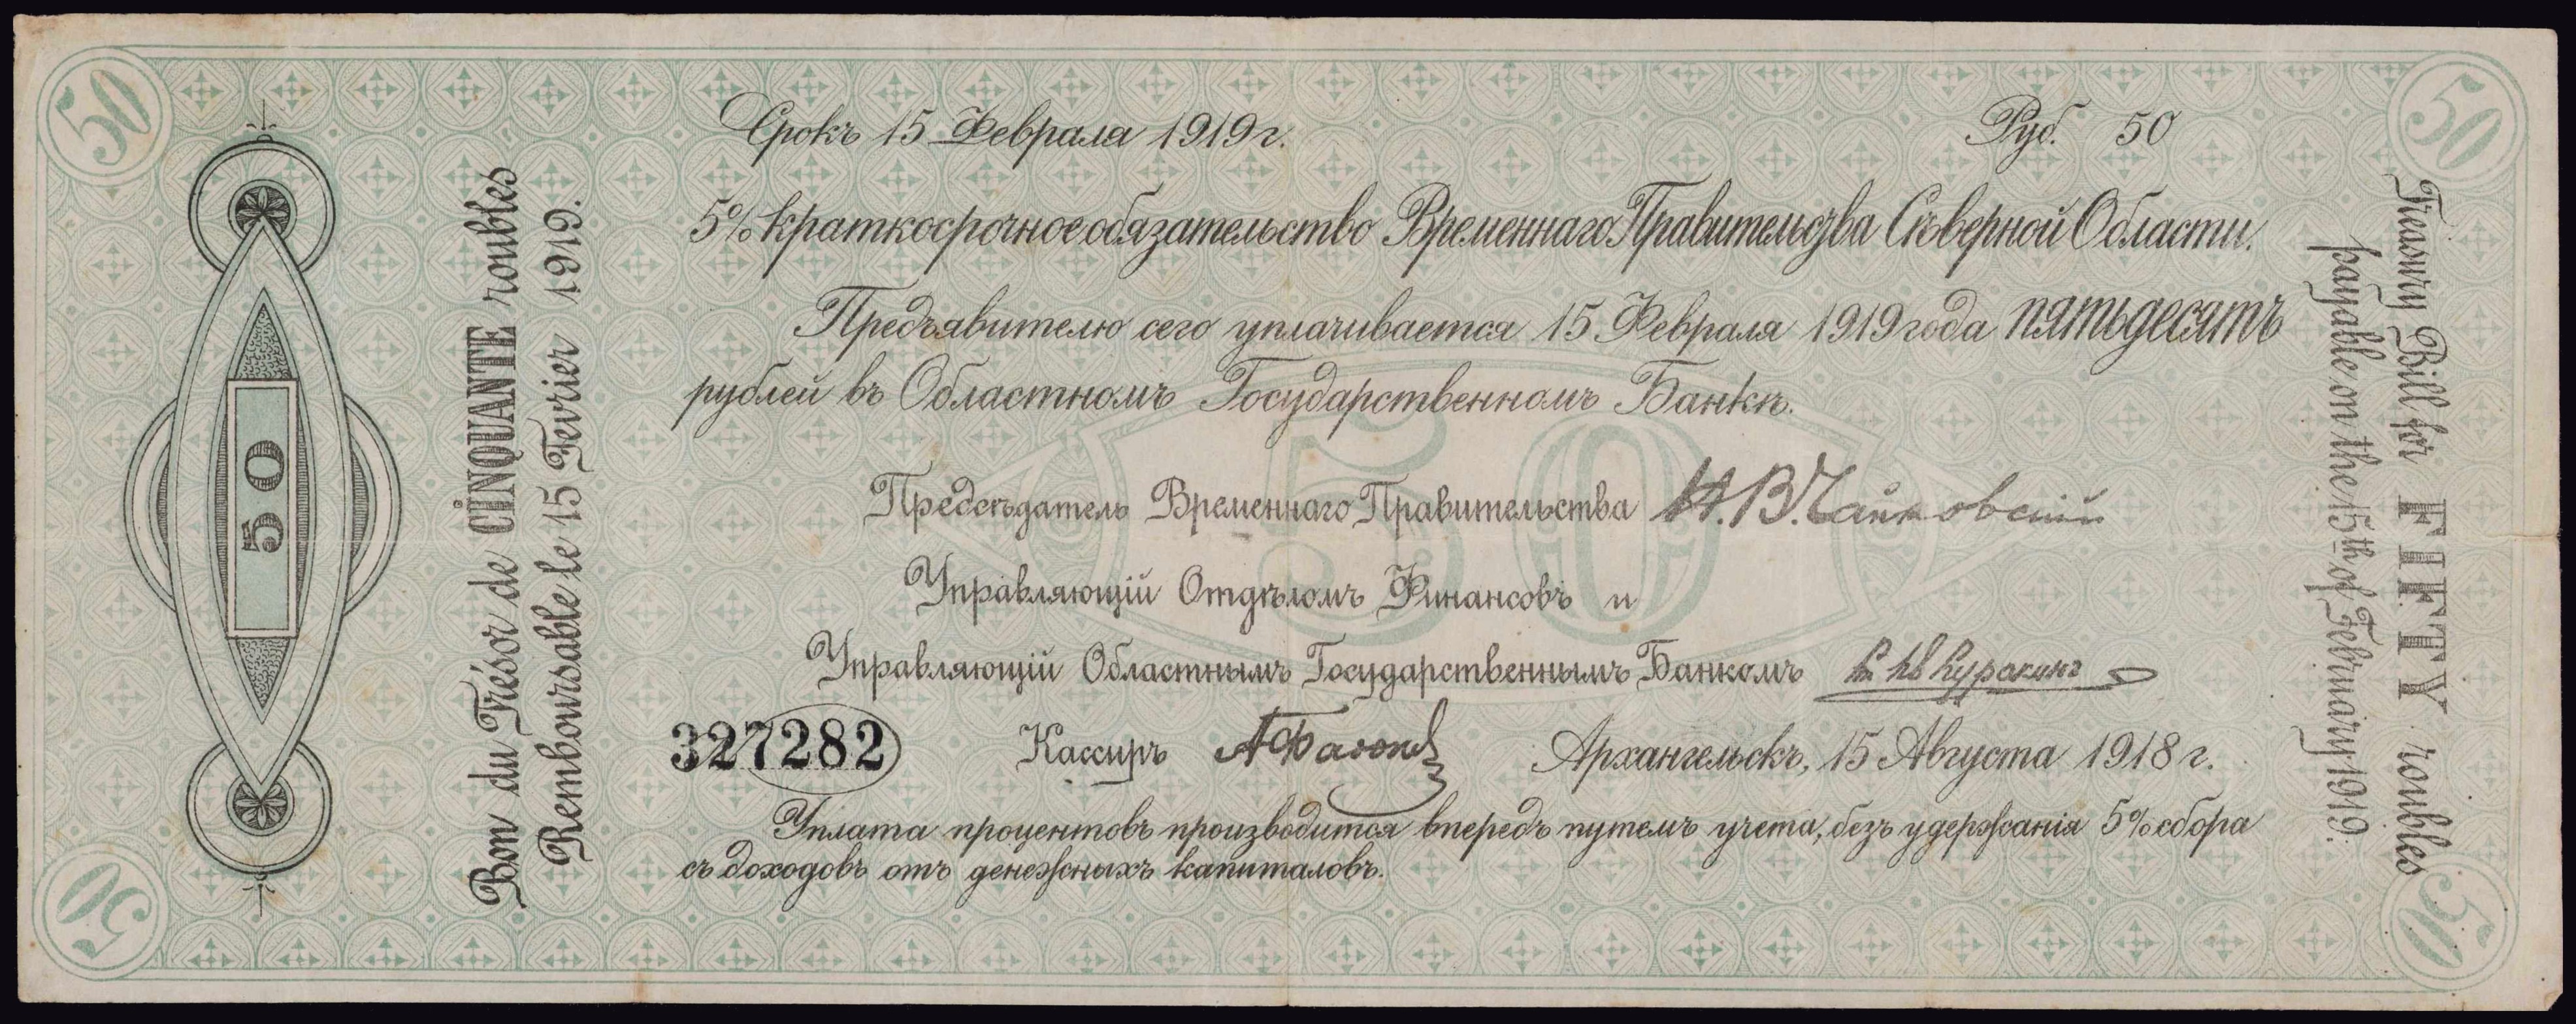 50
50
Срокъ 15 Февраля 1919 г.
Руб. 50
5% краткосрочное обязательство Временнаго Правительства Сѣверной Области.
Предъявителю сего уплачивается 15 Февраля 1919 года пятьдесятъ
рублей въ Областномъ Государственномъ Банкѣ.
50
Предсѣдатель Временнаго Правительства Н. В. Чайковскій
Управляющій Отдѣломъ Финансовъ и
Управляющій Областнымъ Государственнымъ Банкомъ
327282
Кассиръ
Архангельскъ, 15 Августа 1918 г.
Уплата процентовъ производится впередъ путемъ учета, безъ удержанія 5% сбора
съ доходовъ отъ денежныхъ капиталовъ.
50
Bon du Trésor de CINQUANTE roubles
Remboursable le 15 Fevrier 1919.
Treasury Bill for FIFTY roubles
payable on the 15th of February 1919.
50
50